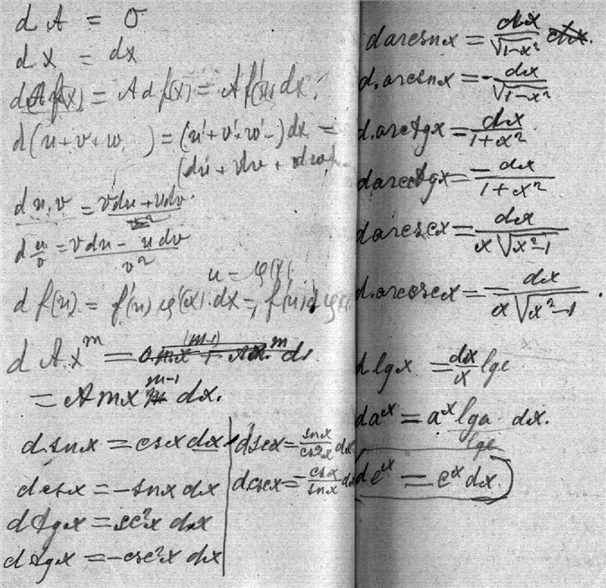 d A = 0
d x = dx
d A f(x) = A d f(x) = A f'(x) dx.
d(u+v+w) = (u'+v'+w') dx =
(du + dv + dw).
d u.v = v du + u dv
d u/v = v du − u dv / v²
u = φ(x)
d f(u) = f'(u) φ'(x) dx = f'(u) d φ(x)
d A x^m =
= A m x^{m-1} dx.
d.snx = csx dx
d csx = −snx dx
d tgx = sc²x dx
d tgx = −csc²x dx
d scx = snx/cs²x dx
d.cscx = −csx/snx dx
d arcsnx = dx/√1−x²
d.arcsnx = −dx/√1−x²
d.arctgx = dx/1+x²
d arcctgx = −dx/1+x²
d arcscx = dx/x√x²−1
d.arccscx = −dx/x√x²−1.
d lgx = dx/x lge
da^x = a^x lga/lge dx.
de^x = e^x dx.